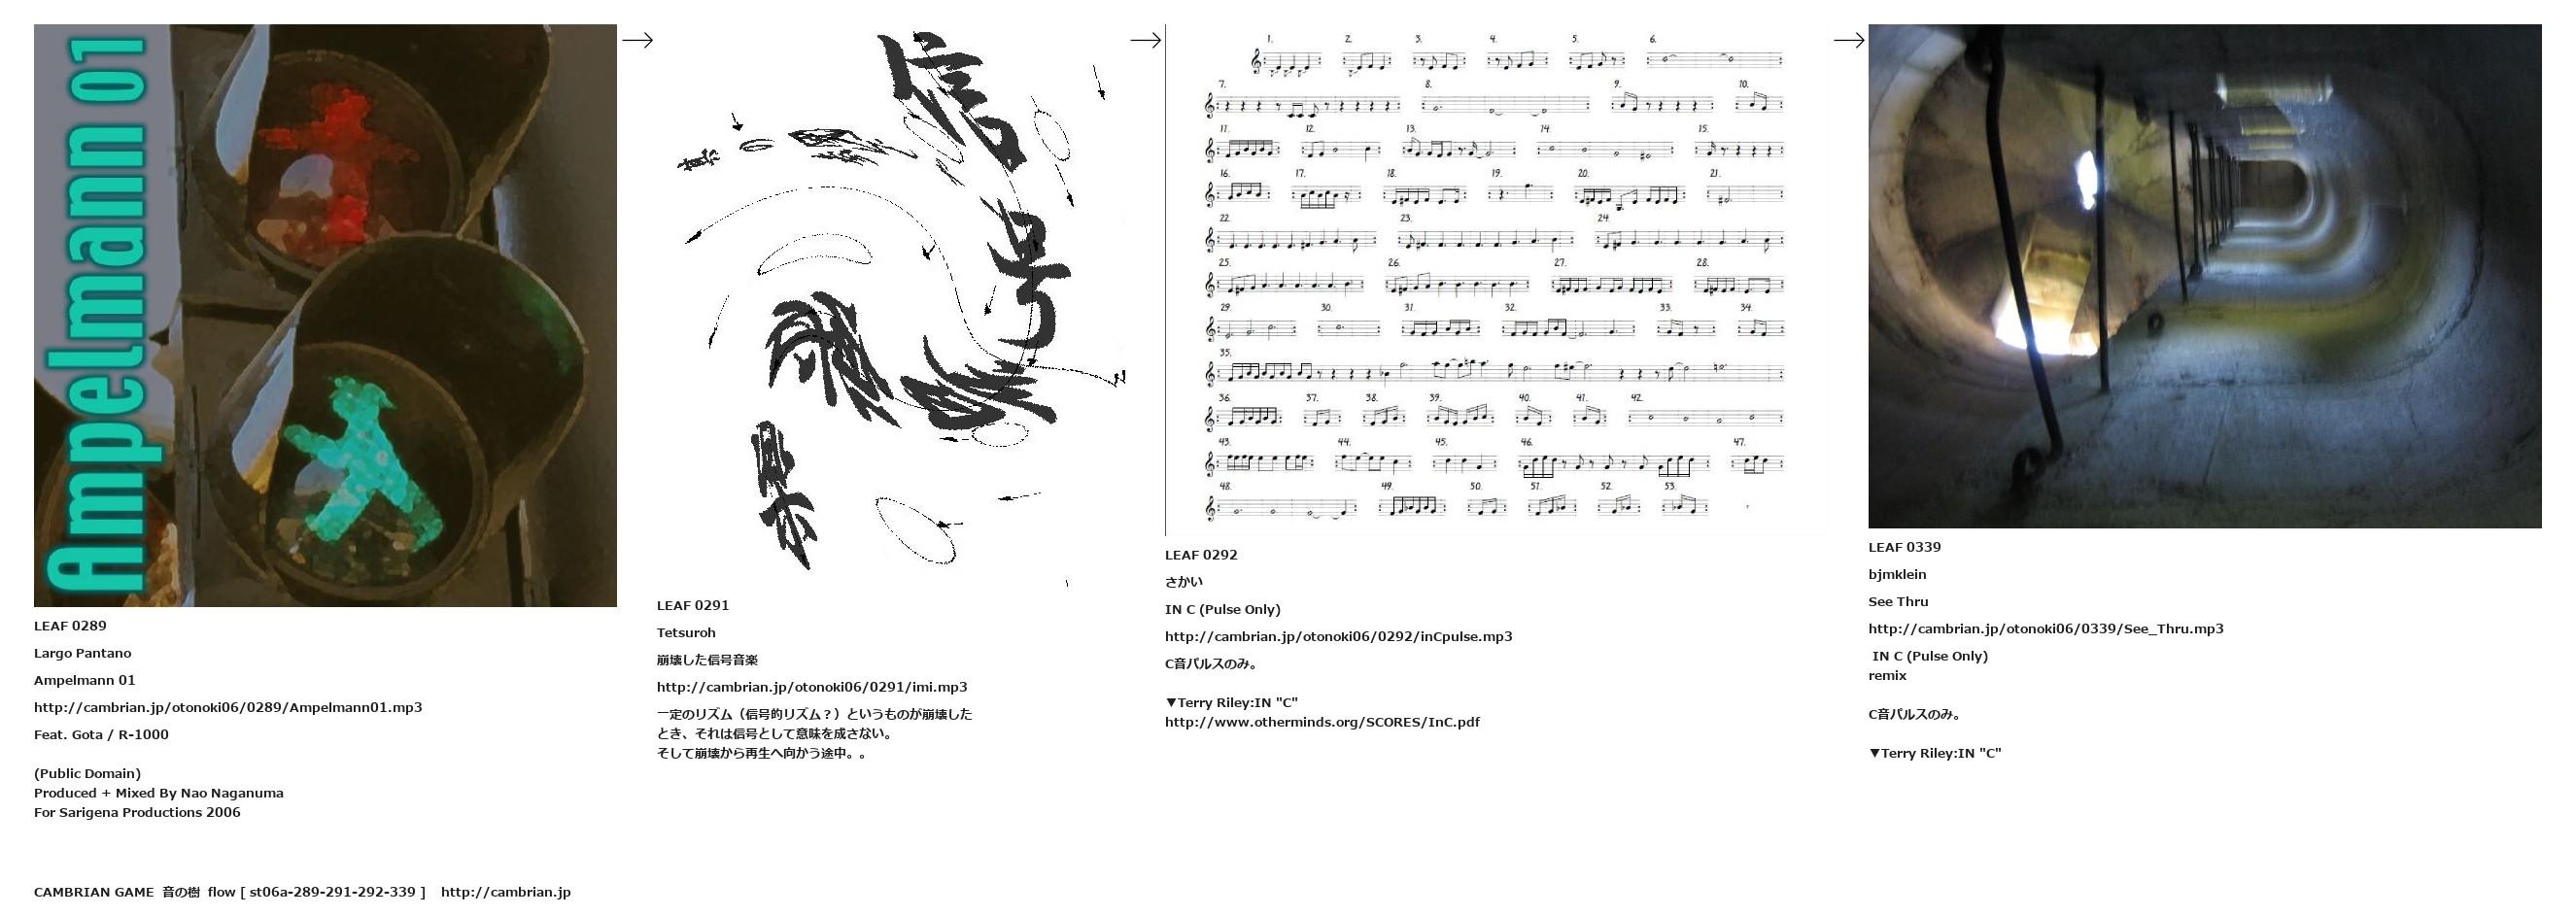 Ampelmann 01
LEAF 0289
Largo Pantano
Ampelmann 01
http://cambrian.jp/otonoki06/0289/Ampelmann01.mp3
Feat. Gota / R-1000
(Public Domain)
Produced + Mixed By Nao Naganuma
For Sarigena Productions 2006
信号
LEAF 0291
Tetsuroh
崩壊した信号音楽
http://cambrian.jp/otonoki06/0291/imi.mp3
一定のリズム（信号的リズム？）というものが崩壊した
とき、それは信号として意味を成さない。
そして崩壊から再生へ向かう途中。。
1. 2. 3. 4. 5. 6.
7. 8. 9. 10.
11. 12. 13. 14. 15.
16. 17. 18. 19. 20. 21.
22. 23. 24.
25. 26. 27. 28.
29. 30. 31. 32. 33. 34.
35.
36. 37. 38. 39. 40. 41. 42.
43. 44. 45. 46. 47.
48. 49. 50. 51. 52. 53.
LEAF 0292
さかい
IN C (Pulse Only)
http://cambrian.jp/otonoki06/0292/inCpulse.mp3
C音パルスのみ。
▼Terry Riley:IN "C"
http://www.otherminds.org/SCORES/InC.pdf
LEAF 0339
bjmklein
See Thru
http://cambrian.jp/otonoki06/0339/See_Thru.mp3
IN C (Pulse Only)
remix
C音パルスのみ。
▼Terry Riley:IN "C"
CAMBRIAN GAME 音の樹 flow [ st06a-289-291-292-339 ] http://cambrian.jp